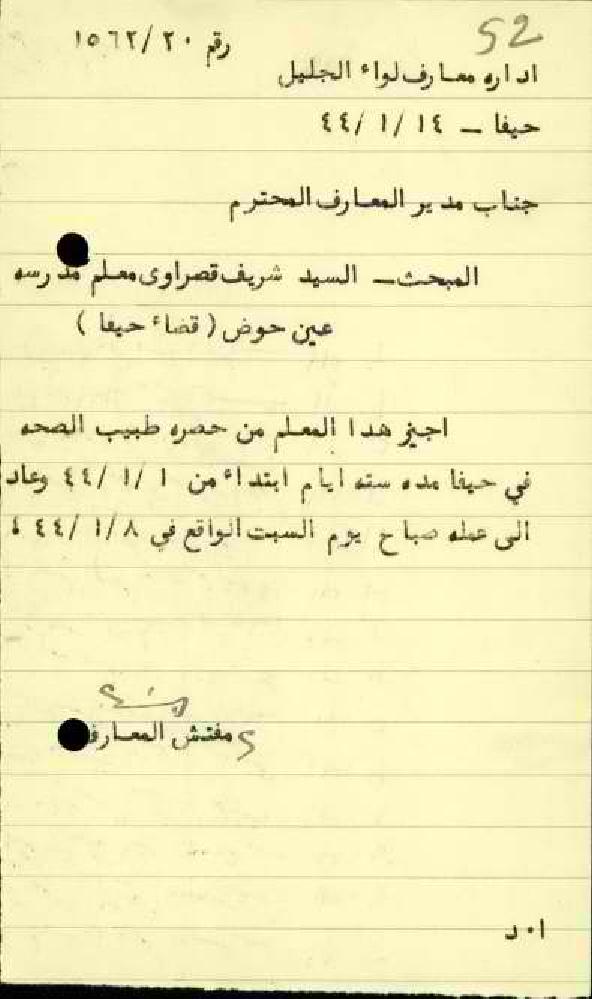 52
رقم ١٥٦٢/٢٠
اداره معارف لواء الجليل
حيفا – ١٤ /١ /٤٤
جناب مدير المعارف المحترم
المبحث – السيد شريف قصراوى معلم مدرسه
عين حوض ( قضاء حيفا )
اجيز هدا المعلم من حصره طبيب الصحه
في حيفا مده سته ايام ابتداء من ١ /١ /٤٤ وعاد
الى عمله صباح يوم السبت الواقع في ٨ /١ /٤٤ ؛
مفتش المعارف
ا٠د